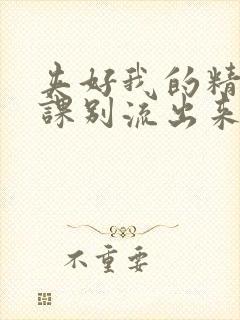 夹好我的精
課别流出来
不重要